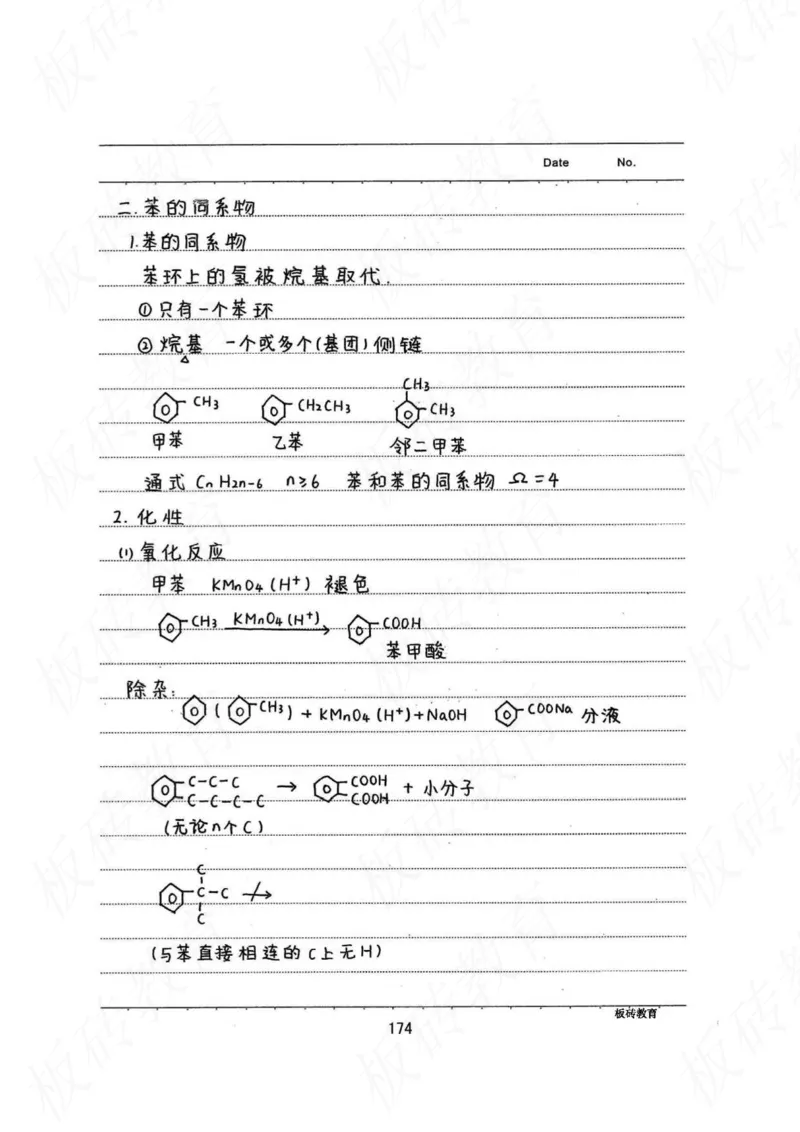 Date No.
二.苯的同系物
1.苯的同系物
苯环上的氢被烷基取代.
①只有一个苯环
②烷基 一个或多个(基团)侧链
CH3
CH3 CH2CH3 CH3
甲苯 乙苯 邻二甲苯
通式 CnH2n-6 n≥6 苯和苯的同系物 Ω=4
2.化性
(1)氧化反应
甲苯 KMnO4(H+) 褪色
CH3 KMnO4(H+) COOH
苯甲酸
除杂:
( CH3)+KMnO4(H+)+NaOH COONa 分液
C-C-C → COOH + 小分子
C-C-C-C COOH
(无论n个C)
C
C-C
C
(与苯直接相连的C上无H)
板砖教育
174